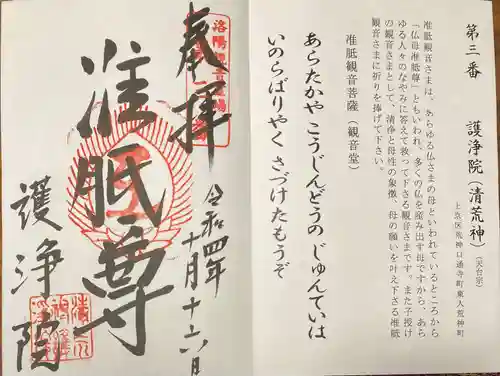 第三番　護浄院（清荒神）（天台宗）
上京区荒神口通寺町東入荒神町
准胝観音さまは、あらゆる仏さまの母といわれているところから
「仏母准胝尊」ともいわれ、多くの仏を産み出す母ですから、あら
ゆる人々のなやみに答えて救って下さる観音さまです。また子授け
の観音さまとして、清浄と母性の象徴、母の願いを叶え下さる准胝
観音さまに祈りを捧げて下さい。
准胝観音菩薩（観音堂）
あらたかや こうじんどうの じゅんていは
いのらばりやく さづけたもうぞ
奉拝
令和四年
十月十六日
准胝尊
護浄院